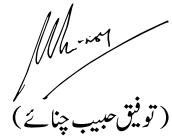 (توفیق حبیب چنائے)